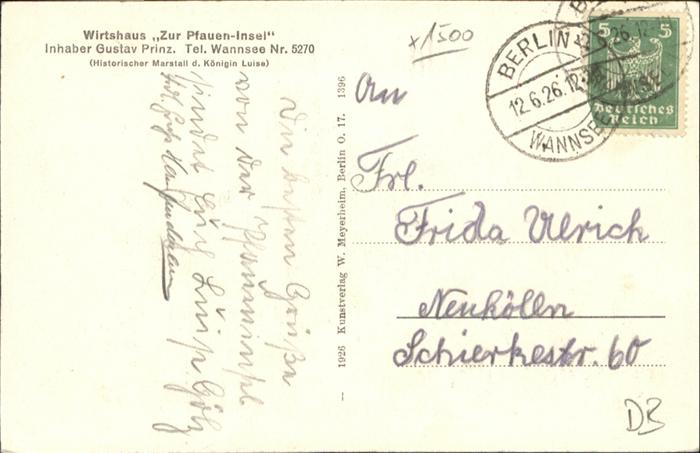 Wirtshaus „Zur Pfauen-Insel"
Inhaber Gustav Prinz. Tel. Wannsee Nr. 5270
(Historischer Marstall d. Königin Luise)
Die besten Grüße
von der Pfaueninsel
sendet Euch Luise Götz
1926 Kunstverlag W. Meyerheim, Berlin O. 17. 1396
x 1500
BERLIN
12.6.26.12
WANNSEE
5 5
Deutsches
Reich
An
Frl.
Frida Ulrich
Neukölln
Schierkestr. 60
DB